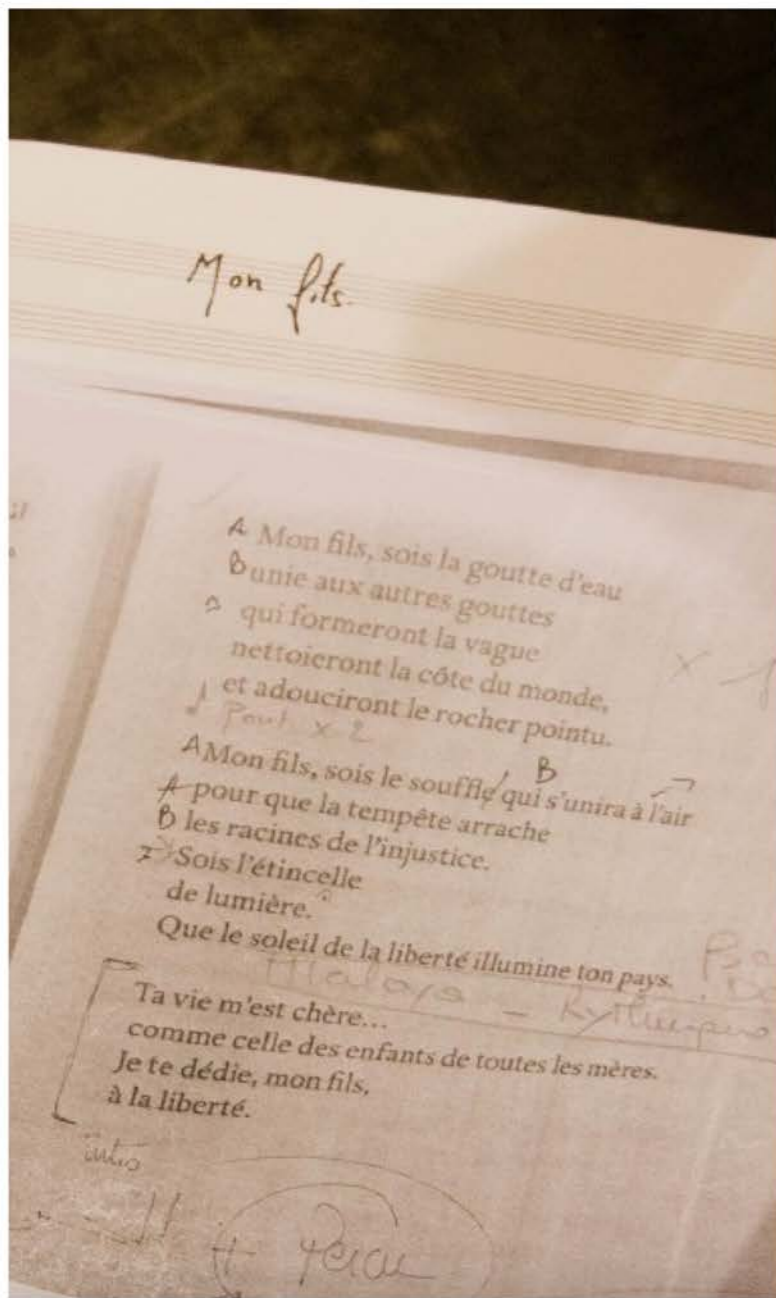 Mon fils.
A Mon fils, sois la goutte d'eau
B unie aux autres gouttes
qui formeront la vague
nettoieront la côte du monde,
et adouciront le rocher pointu.
Pont x 2
B
A Mon fils, sois le souffle / qui s'unira à l'air
A pour que la tempête arrache
B les racines de l'injustice.
Sois l'étincelle
de lumière.
Que le soleil de la liberté illumine ton pays.
Maloya -
Ta vie m'est chère...
comme celle des enfants de toutes les mères.
Je te dédie, mon fils,
à la liberté.
intro
+ Percu